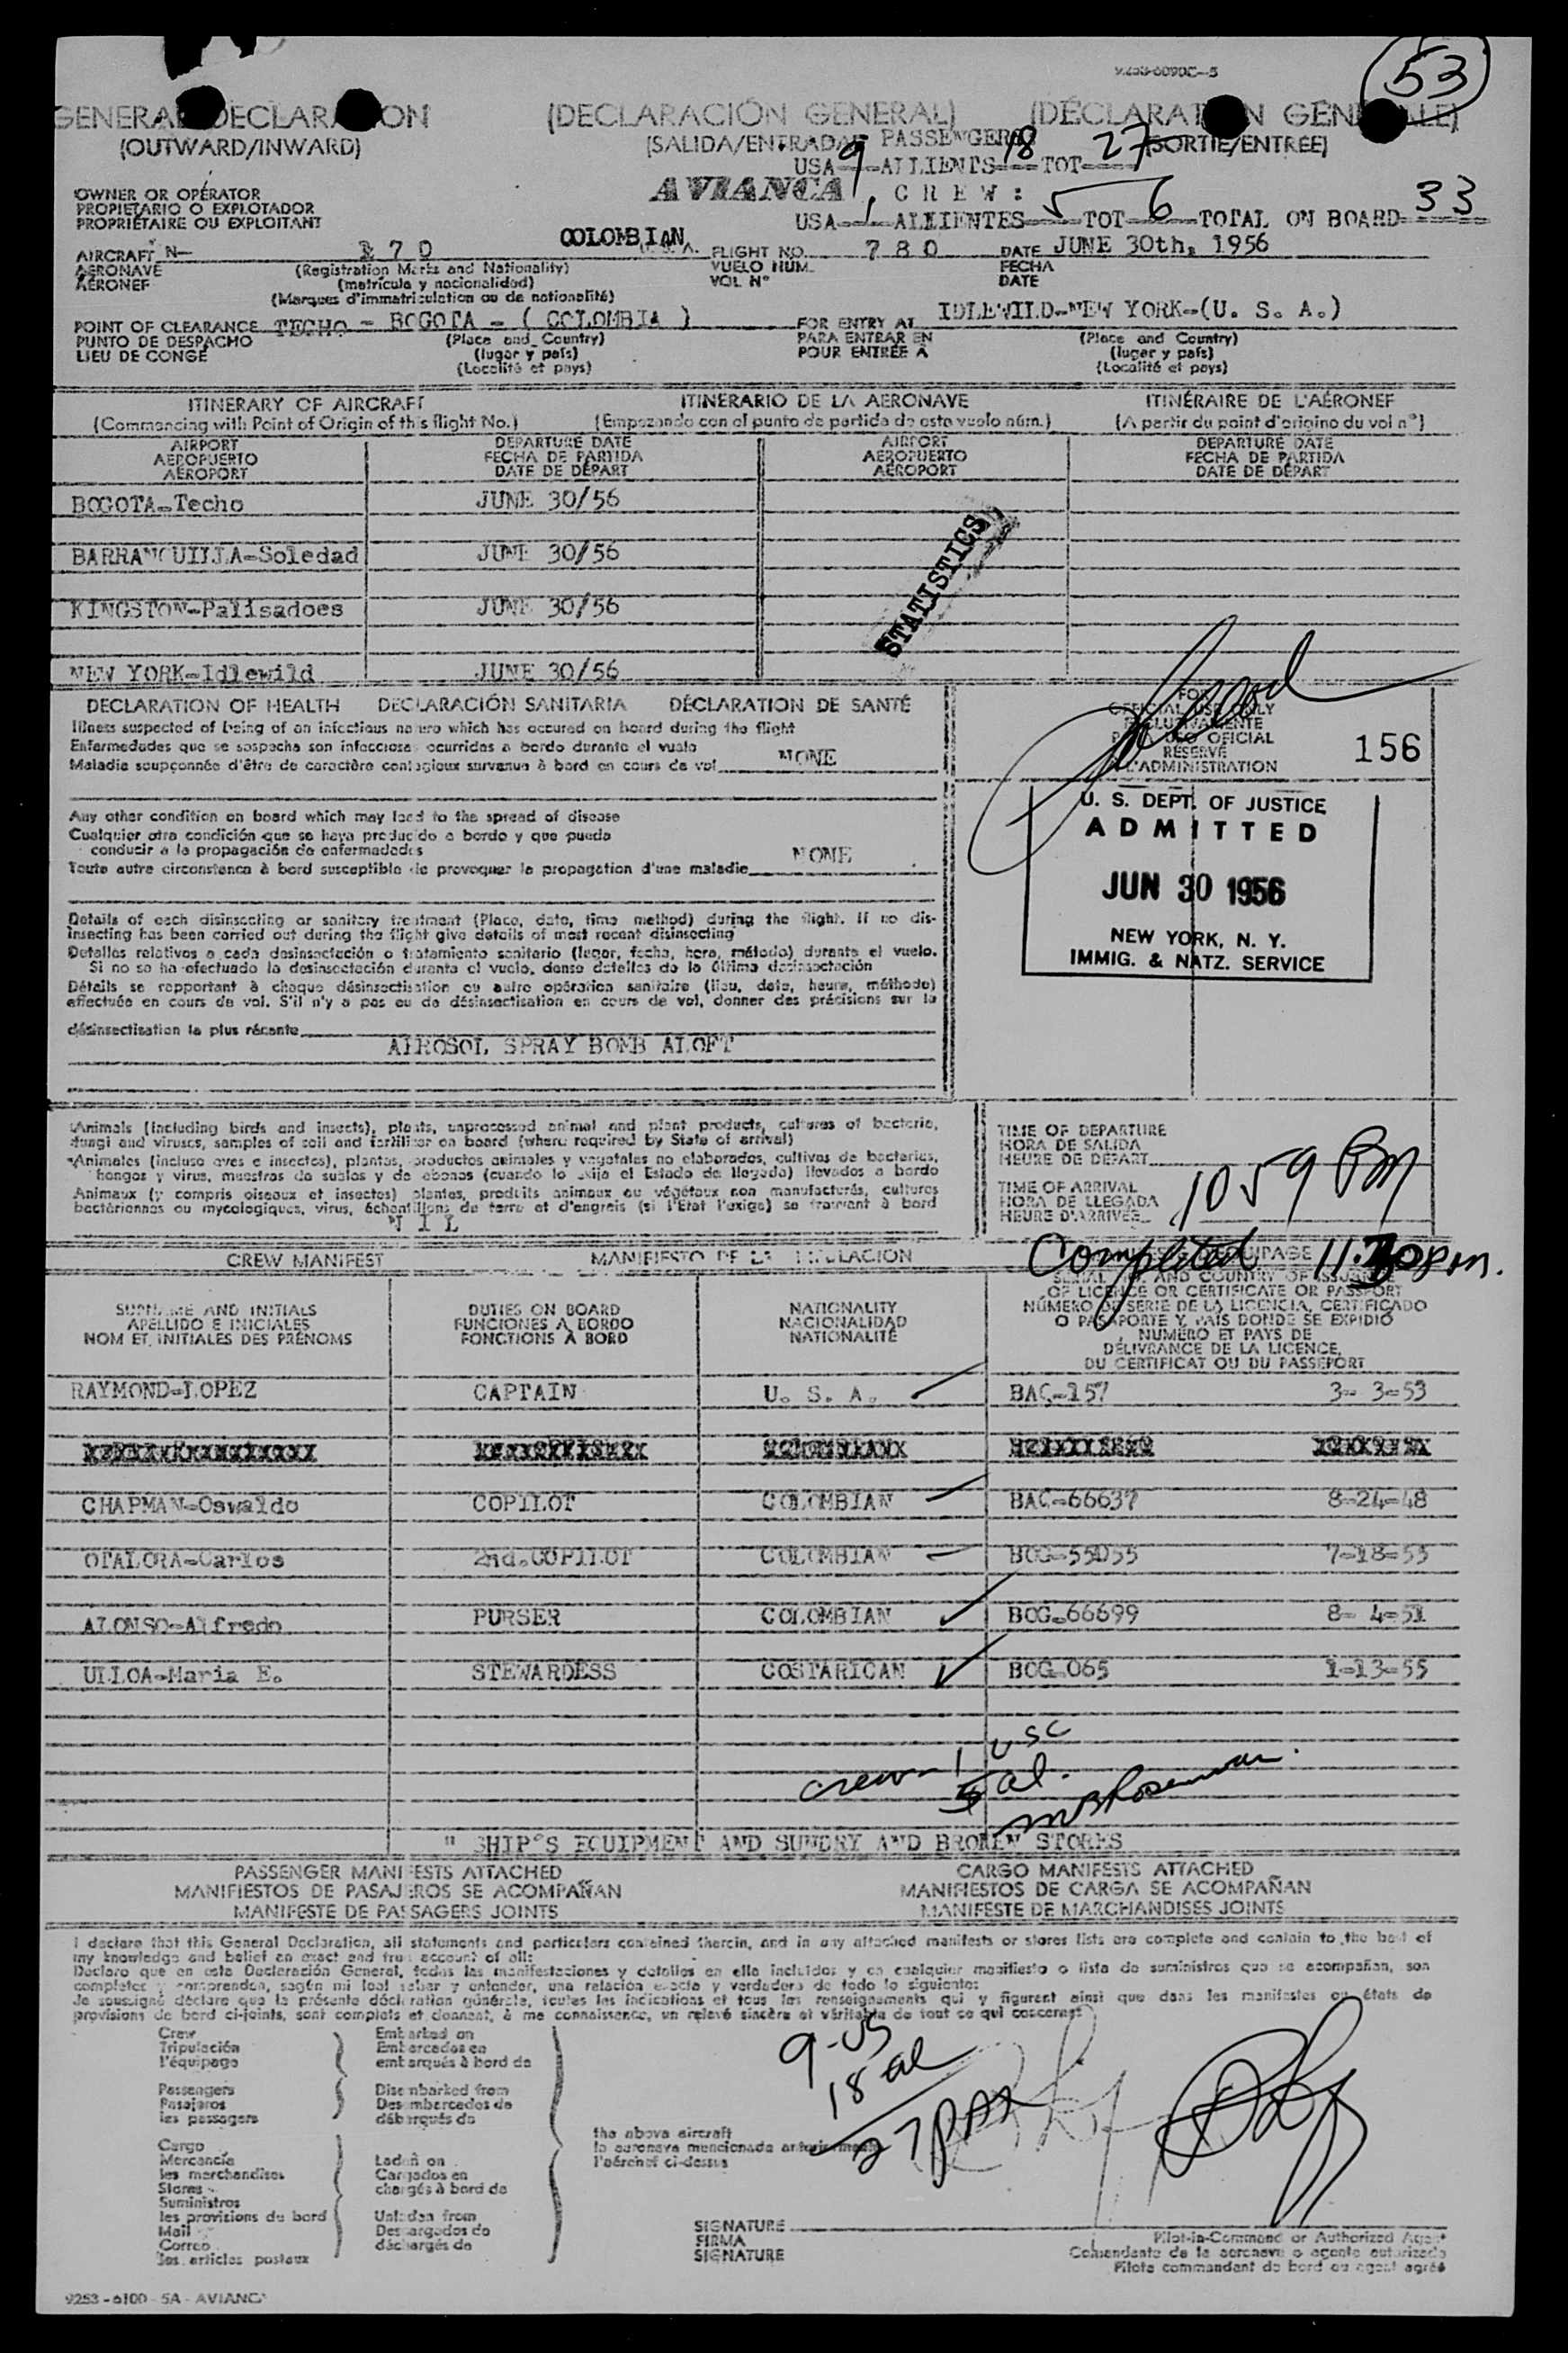 9253-6090C-5
53
GENERAL DECLARATION (DECLARACIÓN GENERAL) (DÉCLARATION GÉNÉRALE)
(OUTWARD/INWARD) (SALIDA/ENTRADA) PASSENGERS (SORTIE/ENTRÉE)
USA 9 ALLIENTS 18 TOT 27
OWNER OR OPERATOR
PROPIETARIO O EXPLOTADOR
PROPRIÉTAIRE OU EXPLOITANT
AVIANCA CREW:
USA 1 ALLIENTES 5 TOT 6 TOTAL ON BOARD 33
AIRCRAFT N- 170 COLOMBIAN FLIGHT NO. 780 DATE JUNE 30th, 1956
AERONAVE (Registration Marks and Nationality) VUELO NUM. FECHA
AÉRONEF (matrícula y nacionalidad) VOL Nº DATE
(Marques d'immatriculation ou de nationalité)
POINT OF CLEARANCE TECHO - BOGOTA - ( COLOMBIA ) FOR ENTRY AT IDLEWILD-NEW YORK-(U. S. A.)
PUNTO DE DESPACHO (Place and Country) PARA ENTRAR EN (Place and Country)
LIEU DE CONGÉ (lugar y país) POUR ENTRÉE A (lugar y país)
(Localité et pays) (Localité et pays)
ITINERARY OF AIRCRAFT ITINERARIO DE LA AERONAVE ITINÉRAIRE DE L'AÉRONEF
(Commencing with Point of Origin of this flight No.) (Empezando con el punto de partida de este vuelo núm.) (A partir du point d'origine du vol nº)
AIRPORT DEPARTURE DATE AIRPORT DEPARTURE DATE
AEROPUERTO FECHA DE PARTIDA AEROPUERTO FECHA DE PARTIDA
AÉROPORT DATE DE DÉPART AÉROPORT DATE DE DÉPART
BOGOTA-Techo JUNE 30/56
BARRANQUILLA-Soledad JUNE 30/56
KINGSTON-Palisadoes JUNE 30/56
NEW YORK-Idlewild JUNE 30/56
STATISTICS
DECLARATION OF HEALTH DECLARACIÓN SANITARIA DÉCLARATION DE SANTÉ
Illness suspected of being of an infectious nature which has occured on board during the flight
Enfermedades que se sospecha son infecciosas ocurridas a bordo durante el vuelo
Maladie soupçonnée d'être de caractère contagieux survenue à bord en cours de vol NONE
FOR
OFFICIAL USE ONLY
EXCLUSIVAMENTE
PARA USO OFICIAL
RESERVÉ
L'ADMINISTRATION
156
U. S. DEPT. OF JUSTICE
ADMITTED
JUN 30 1956
NEW YORK, N. Y.
IMMIG. & NATZ. SERVICE
Any other condition on board which may lead to the spread of disease
Cualquier otra condición que se haya producido a bordo y que pueda
conducir a la propagación de enfermedades
Toute autre circonstance à bord susceptible de provoquer la propagation d'une maladie NONE
Details of each disinsecting or sanitary treatment (Place, date, time method) during the flight. If no dis-
insecting has been carried out during the flight give details of most recent disinsecting
Detalles relativos a cada desinsectación o tratamiento sanitario (lugar, fecha, hora, método) durante el vuelo.
Si no se ha efectuado la desinsectación durante el vuelo, dense detalles de la última desinsectación
Détails se rapportant à chaque désinsectisation ou autre opération sanitaire (lieu, date, heure, méthode)
effectuée en cours de vol. S'il n'y a pas eu de désinsectisation en cours de vol, donner des précisions sur la
désinsectisation la plus récente
AIROSOL SPRAY BOMB ALOFT
Animals (including birds and insects), plants, unprocessed animal and plant products, cultures of bacteria,
fungi and viruses, samples of soil and fertilizer on board (where required by State of arrival)
Animales (incluso aves e insectos), plantas, productos animales y vegetales no elaborados, cultivos de bacterias,
hongos y virus, muestras de suelos y de abonos (cuando lo exija el Estado de llegada) llevados a bordo
Animaux (y compris oiseaux et insectes) plantes, produits animaux ou végétaux non manufacturés, cultures
bactériennes ou mycologiques, virus, échantillons de terre et d'engrais (si l'État l'exige) se trouvant à bord
NIL
TIME OF DEPARTURE
HORA DE SALIDA
HEURE DE DÉPART
TIME OF ARRIVAL
HORA DE LLEGADA
HEURE D'ARRIVÉE
10 59 PM
Completed 11:30 pm.
CREW MANIFEST MANIFIESTO DE LA TRIPULACION ÉQUIPAGE
SURNAME AND INITIALS DUTIES ON BOARD NATIONALITY
APELLIDO E INICIALES FUNCIONES A BORDO NACIONALIDAD
NOM ET INITIALES DES PRÉNOMS FONCTIONS À BORD NATIONALITÉ
SERIAL AND COUNTRY OF ISSUANCE
OF LICENCE OR CERTIFICATE OR PASSPORT
NÚMERO DE SERIE DE LA LICENCIA, CERTIFICADO
O PASAPORTE Y PAÍS DONDE SE EXPIDIÓ
NUMÉRO ET PAYS DE
DÉLIVRANCE DE LA LICENCE,
DU CERTIFICAT OU DU PASSEPORT
RAYMOND-LOPEZ CAPTAIN U. S. A. BAC-157 3- 3-53
CHAPMAN-Oswaldo COPILOT COLOMBIAN BAC-66637 8-24-48
OTALORA-Carlos 2nd.COPILOT COLOMBIAN BOG-55055 7-18-53
ALONSO-Alfredo PURSER COLOMBIAN BOG-66699 8- 4-51
ULLOA-Maria E. STEWARDESS COSTARICAN BOG-065 1-13-55
crew - 1 usc
5 al.
" SHIP'S EQUIPMENT AND SUNDRY AND BROKEN STORES
PASSENGER MANIFESTS ATTACHED CARGO MANIFESTS ATTACHED
MANIFIESTOS DE PASAJEROS SE ACOMPAÑAN MANIFIESTOS DE CARGA SE ACOMPAÑAN
MANIFESTE DE PASSAGERS JOINTS MANIFESTE DE MARCHANDISES JOINTS
I declare that this General Declaration, all statements and particulars contained therein, and in any attached manifests or stores lists are complete and contain to the best of
my knowledge and belief an exact and true account of all:
Declaro que en esta Declaración General, todas las manifestaciones y detalles en ella incluidos y en cualquier manifiesto o lista de suministros que se acompañan, son
completos y comprenden, según mi leal saber y entender, una relación exacta y verdadera de todo lo siguiente:
Je soussigné déclare que la présente déclaration générale, toutes les indications et tous les renseignements qui y figurent ainsi que dans les manifestes ou états de
provisions de bord ci-joints, sont complets et donnent, à ma connaissance, un relevé sincère et véritable de tout ce qui concerne:
Crew Embarked on
Tripulación Embarcados en
l'équipage embarqués à bord de
Passengers Disembarked from
Pasajeros Desembarcados de
les passagers débarqués de
Cargo
Mercancía Laden on
les marchandises Cargados en
Stores chargés à bord de
Suministros
les provisions de bord Unladen from
Mail Descargados de
Correo déchargés de
les articles postaux
the above aircraft
la aeronave mencionada anteriormente
l'aéronef ci-dessus
9-US
18 al
27 PAX
SIGNATURE Pilot-in-Command or Authorized Agent
FIRMA Comandante de la aeronave o agente autorizado
SIGNATURE Pilote commandant de bord ou agent agréé
9253-6100-5A-AVIANCA